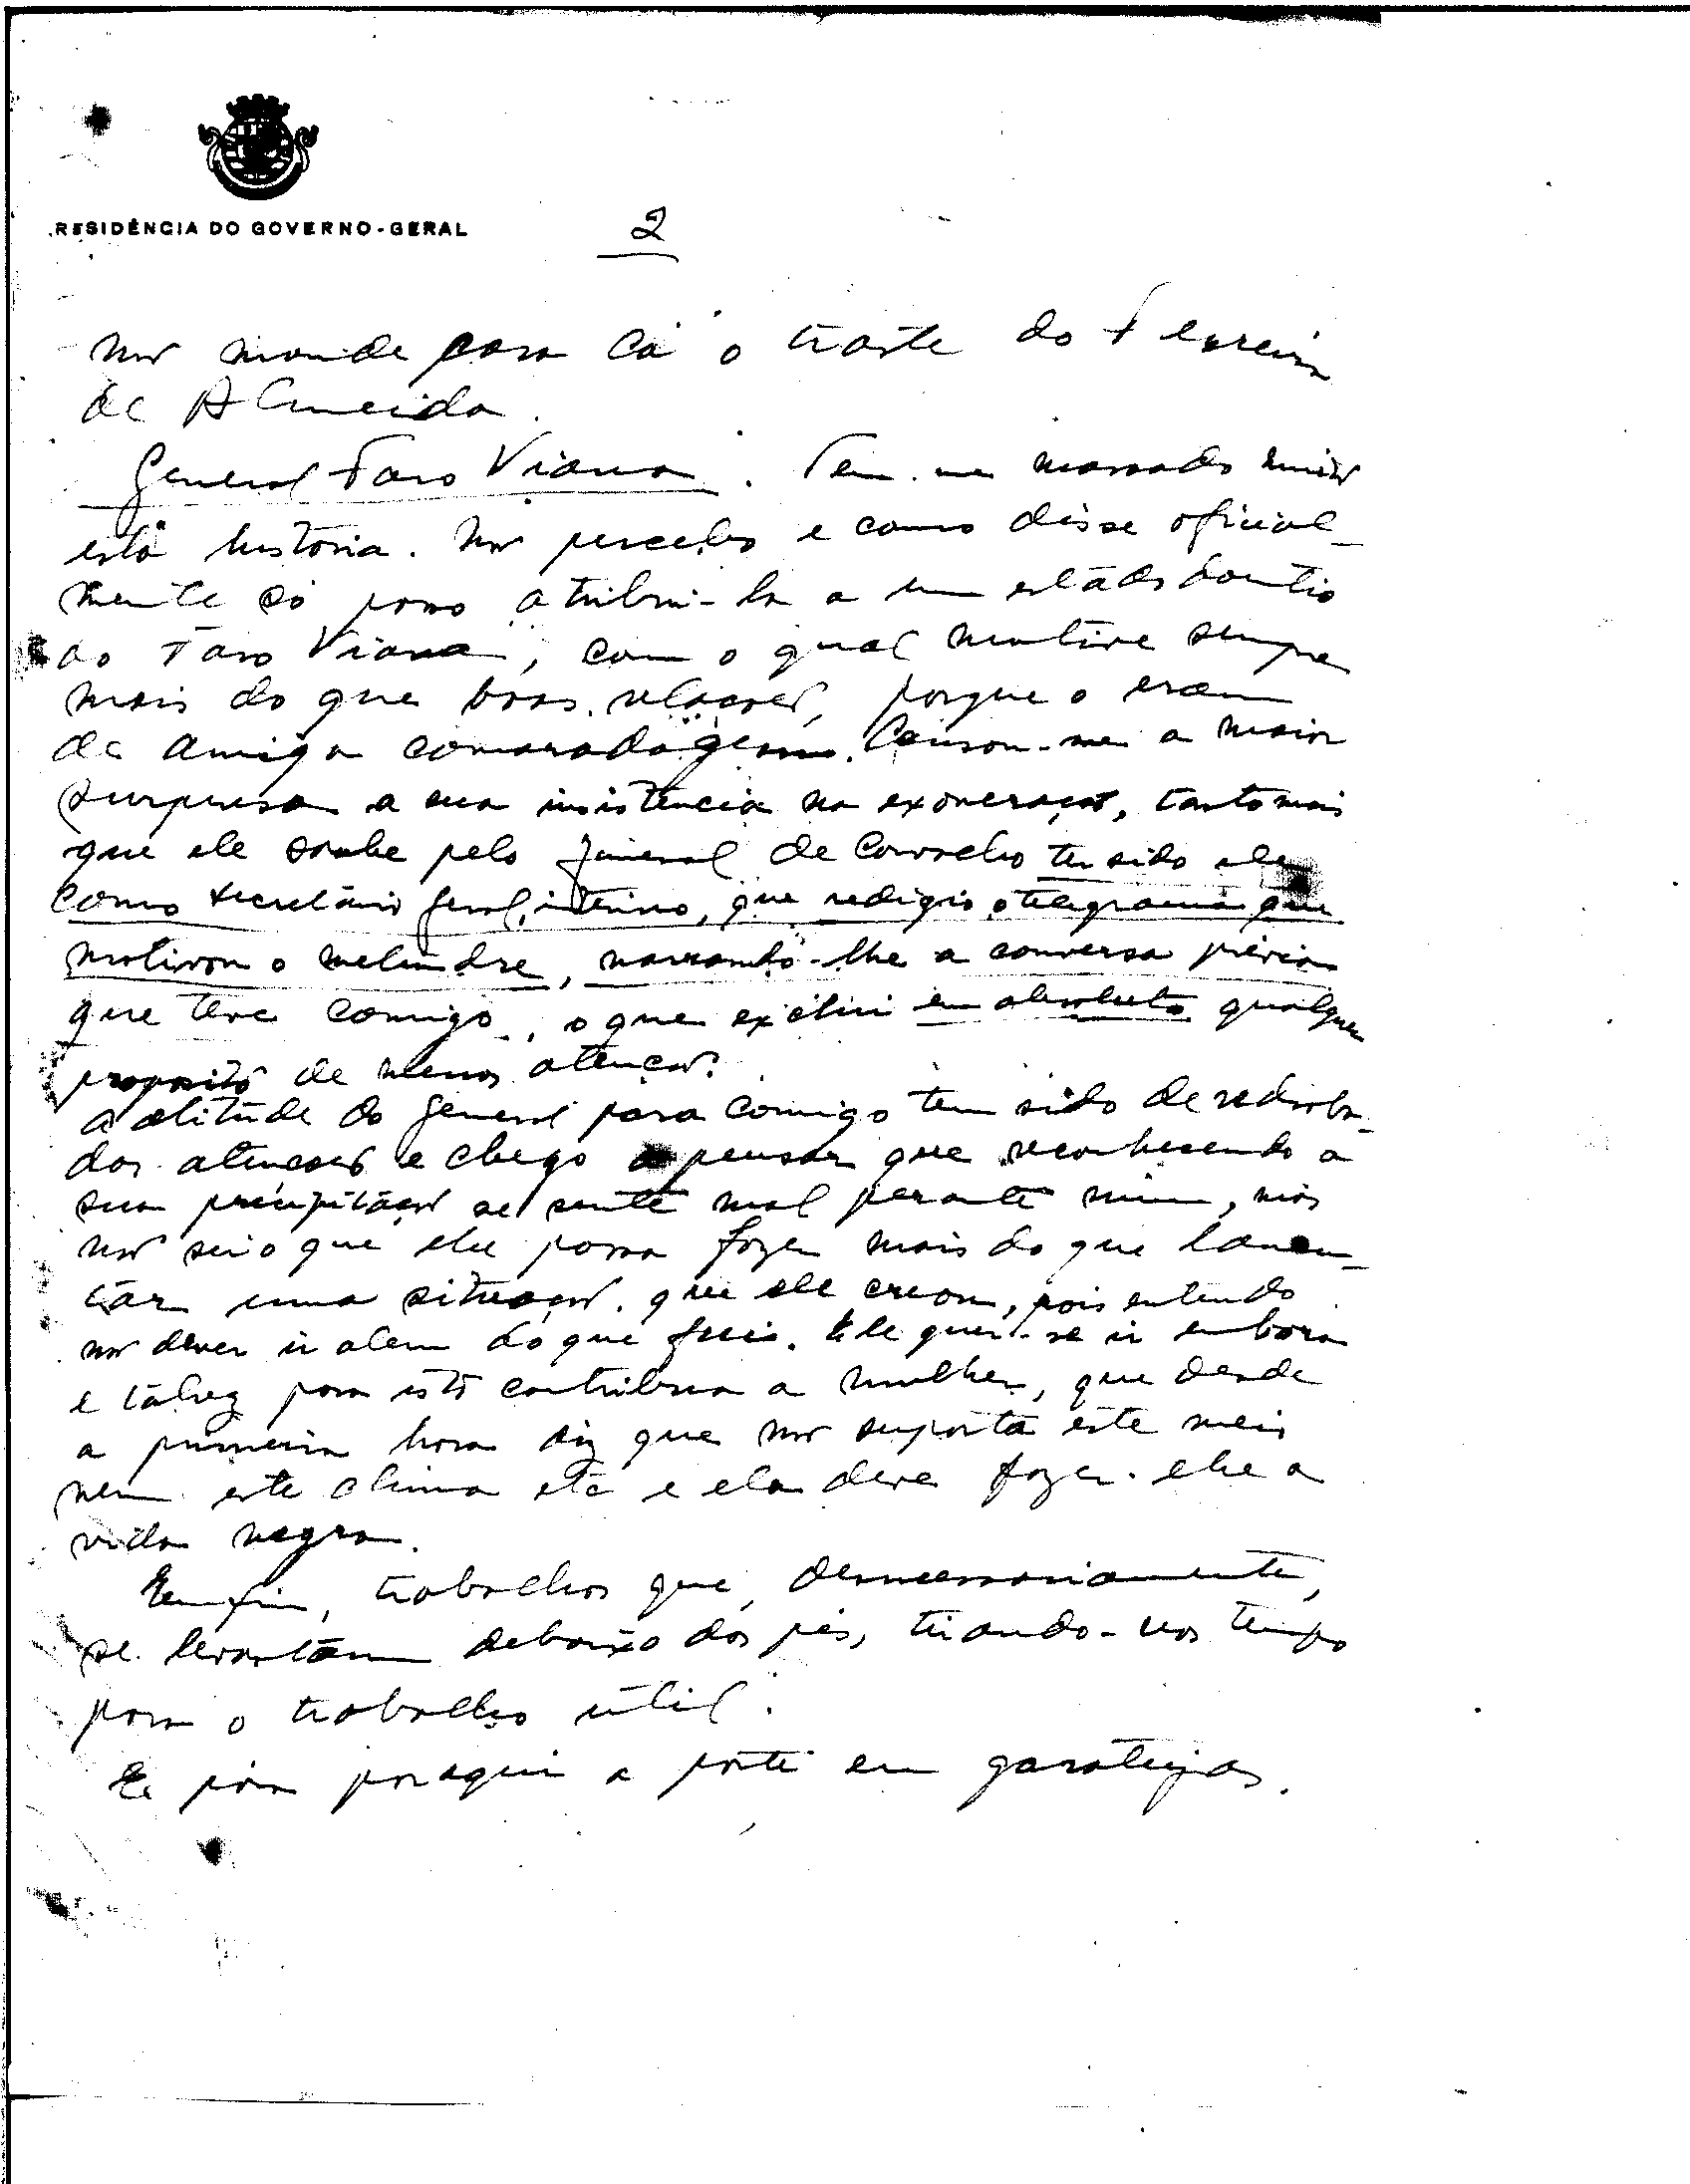 RESIDÊNCIA DO GOVERNO-GERAL
2
não mande para cá o traste do Ferreira
de Almeida.
General Faro Viana. Tem-me massado muito
esta história. Não percebo e como disse oficial-
mente só posso atribui-la a um estado doentio
do Faro Viana, com o qual mantive sempre
mais do que boas relações, porque o eram
de amiga camaradagem. Causou-me a maior
surpresa a sua insistência na exoneração, tanto mais
que ele soube pelo General de Carvalho ter sido ele
como secretário geral, interino, que redigio o telegrama que
motivou o melindre, narrando-lhe a conversa prévia
que teve comigo, o que exclui em absoluto qualquer
proposito de menos atenção.
A atitude do General para comigo tem sido de redobra-
das atenções e chego a pensar que reconhecendo a
sua precipitação se sente mal perante mim, mas
não sei o que ele possa fazer mais do que lamen-
tar uma situação que ele criou, pois entendo
não dever ir alem do que fui. Ele quer-se ir embora
e talvez para isto contribua a mulher, que desde
a primeira hora diz que não suporta este meio
nem este clima etc e ela deve fazer-lhe a
vida negra.
Emfim, trabalhos que, desnecessariamente,
se levantam debaixo dos pés, tirando-nos tempo
para o trabalho útil.
E por aqui a parte em garatujas.